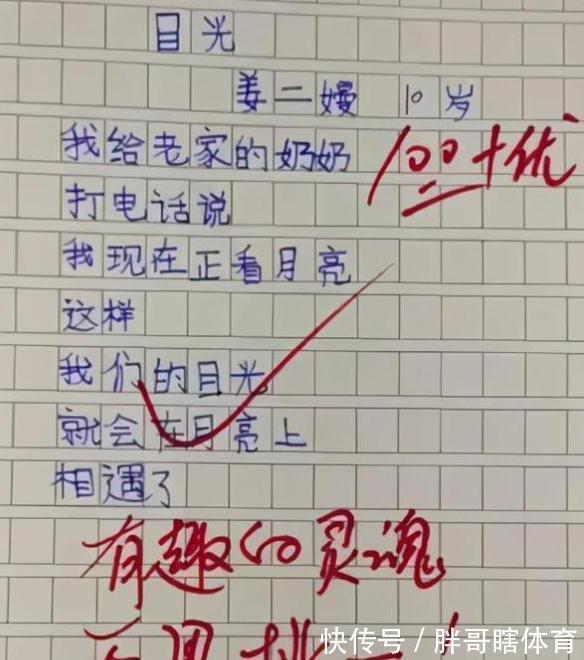 目光
姜二嫚 10岁
我给老家的奶奶
100+优
打电话说
我现在正看月亮
这样
我们的目光
就会在月亮上
相遇了
有趣的灵魂
快传号 / 胖哥瞎体育